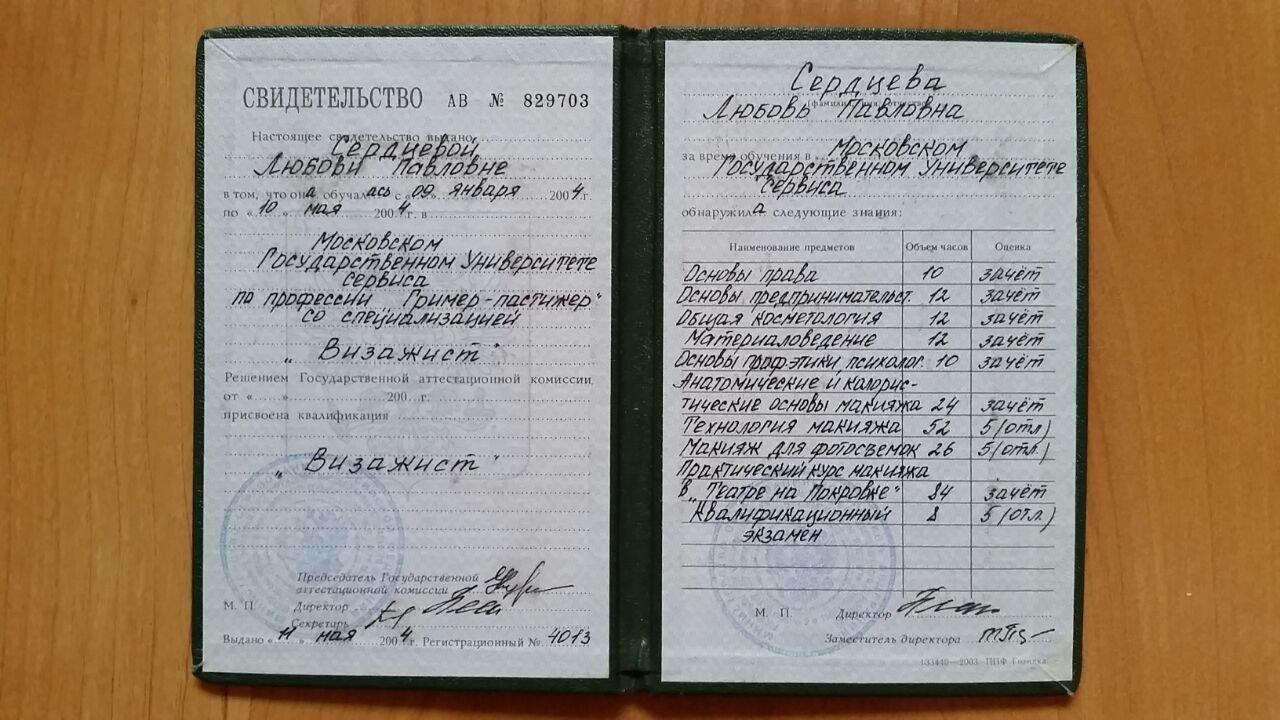 СВИДЕТЕЛЬСТВО АВ № 829703
Настоящее свидетельство выдано
Сердцевой
Любови Павловне
в том, что он а обучал ась с 09 января 2004 г.
по «10» мая 2004 г. в
Московском
Государственном Университете
сервиса
по профессии "Гример-пастижер"
со специализацией
"Визажист"
Решением Государственной аттестационной комиссии
от «......» 200...г.
присвоена квалификация
"Визажист"
Председатель Государственной
аттестационной комиссии
М. П. Директор
Секретарь
Выдано «11» мая 2004 г. Регистрационный № 4013
Сердцева
Любовь Павловна
за время обучения в Московском
Государственном Университете
Сервиса
обнаружил а следующие знания:
Наименование предметов Объем часов Оценка
Основы права 10 зачёт
Основы предпринимательст. 12 зачёт
Общая косметология 12 зачёт
Материаловедение 12 зачёт
Основы проф.этики психолог. 10 зачёт
Анатомические и колорис-
тические основы макияжа 24 зачёт
Технология макияжа 52 5 (отл)
Макияж для фотосъемок 26 5 (отл.)
Практический курс макияжа
в "Театре на Покровке" 84 зачёт
Квалификационный 8 5 (отл.)
экзамен
М. П. Директор
Заместитель директора
133440—2003 ППФ Гознака